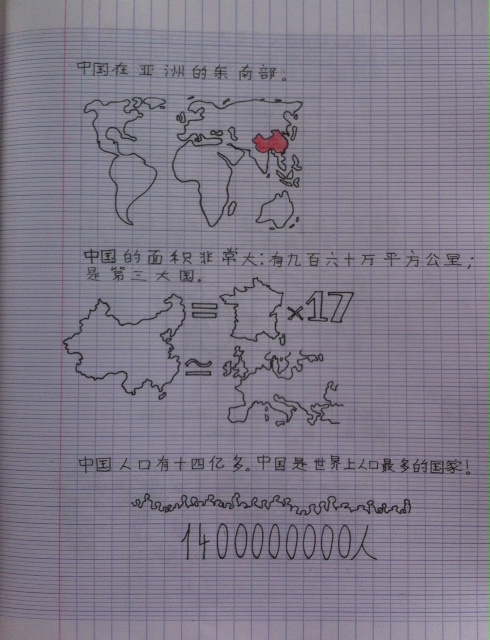 中国在亚洲的东南部。
中国的面积非常大:有九百六十万平方公里;
是第三大国。
= ×17
≃
中国人口有十四亿多。中国是世界上人口最多的国家!
1400000000人